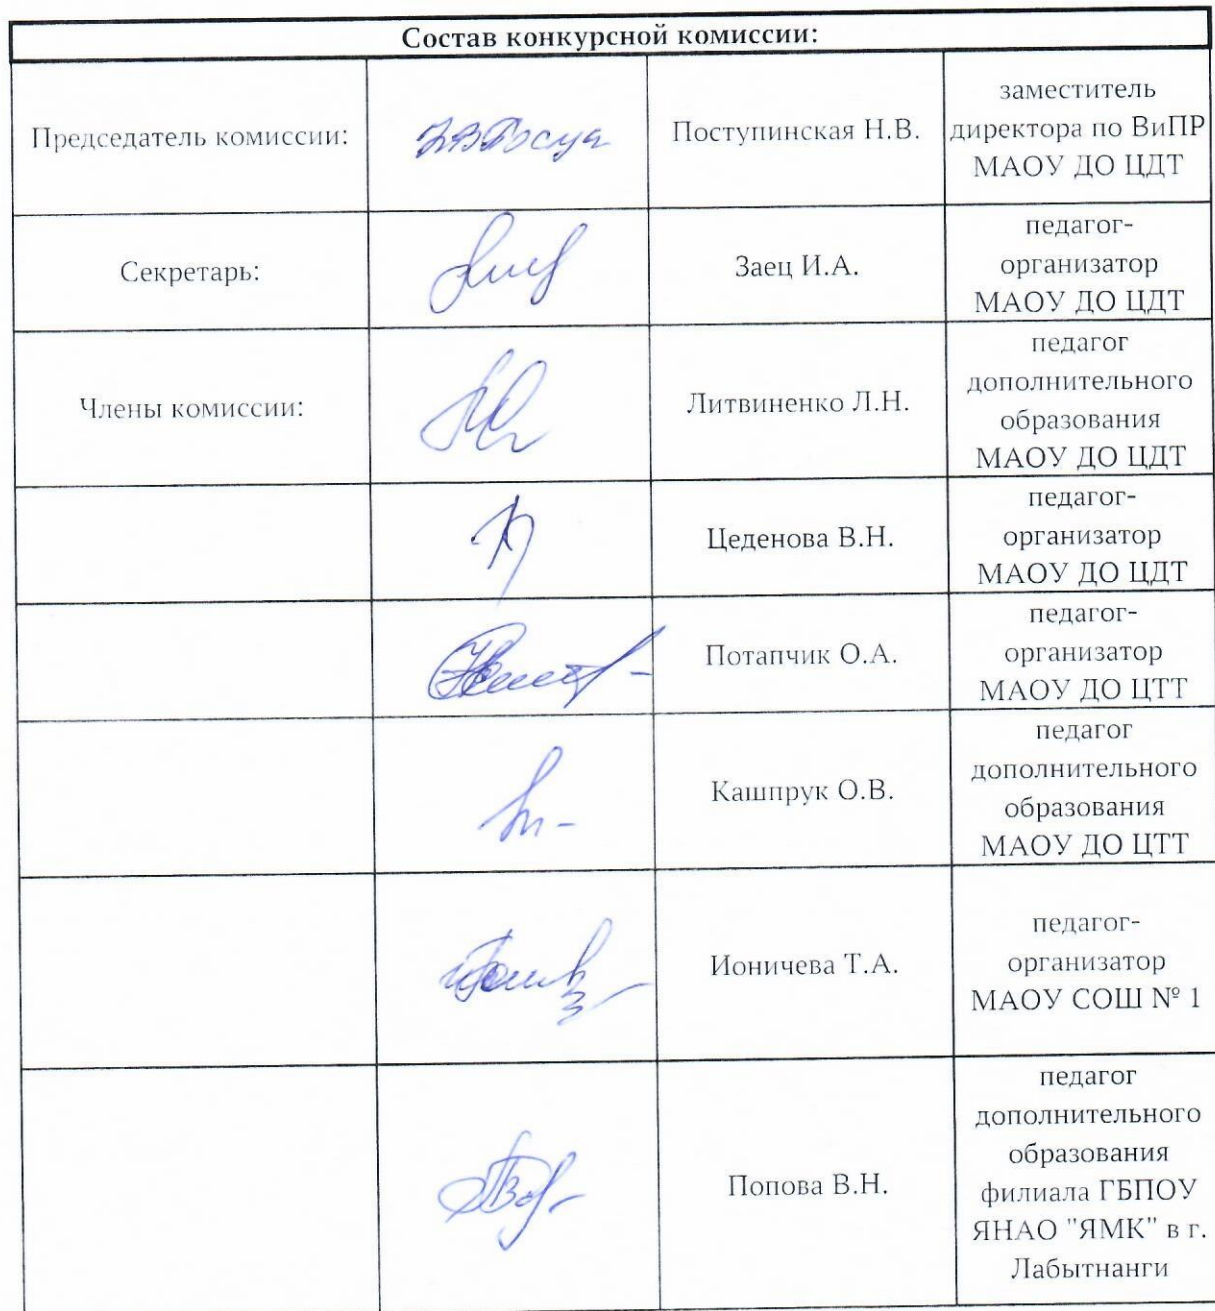 Состав конкурсной комиссии:
Председатель комиссии:
Поступинская Н.В.
заместитель
директора по ВиПР
МАОУ ДО ЦДТ
Секретарь:
Заец И.А.
педагог-
организатор
МАОУ ДО ЦДТ
Члены комиссии:
Литвиненко Л.Н.
педагог
дополнительного
образования
МАОУ ДО ЦДТ
Цеденова В.Н.
педагог-
организатор
МАОУ ДО ЦДТ
Потапчик О.А.
педагог-
организатор
МАОУ ДО ЦТТ
Кашпрук О.В.
педагог
дополнительного
образования
МАОУ ДО ЦТТ
Ионичева Т.А.
педагог-
организатор
МАОУ СОШ № 1
Попова В.Н.
педагог
дополнительного
образования
филиала ГБПОУ
ЯНАО "ЯМК" в г.
Лабытнанги